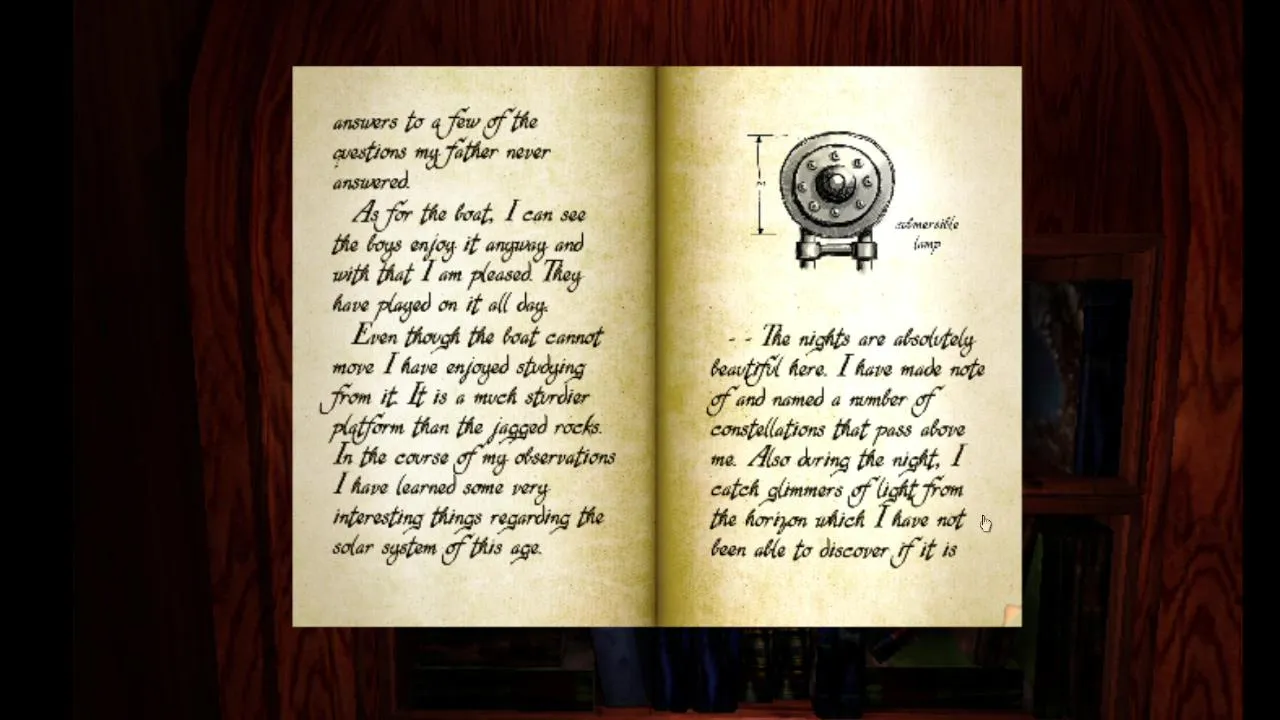 answers to a few of the
questions my father never
answered.
As for the boat, I can see
the boys enjoy it anyway and
with that I am pleased. They
have played on it all day.
Even though the boat cannot
move I have enjoyed studying
from it. It is a much sturdier
platform than the jagged rocks.
In the course of my observations
I have learned some very
interesting things regarding the
solar system of this age.
submersible
lamp
- - The nights are absolutely
beautiful here. I have made note
of and named a number of
constellations that pass above
me. Also during the night, I
catch glimmers of light from
the horizon which I have not
been able to discover if it is